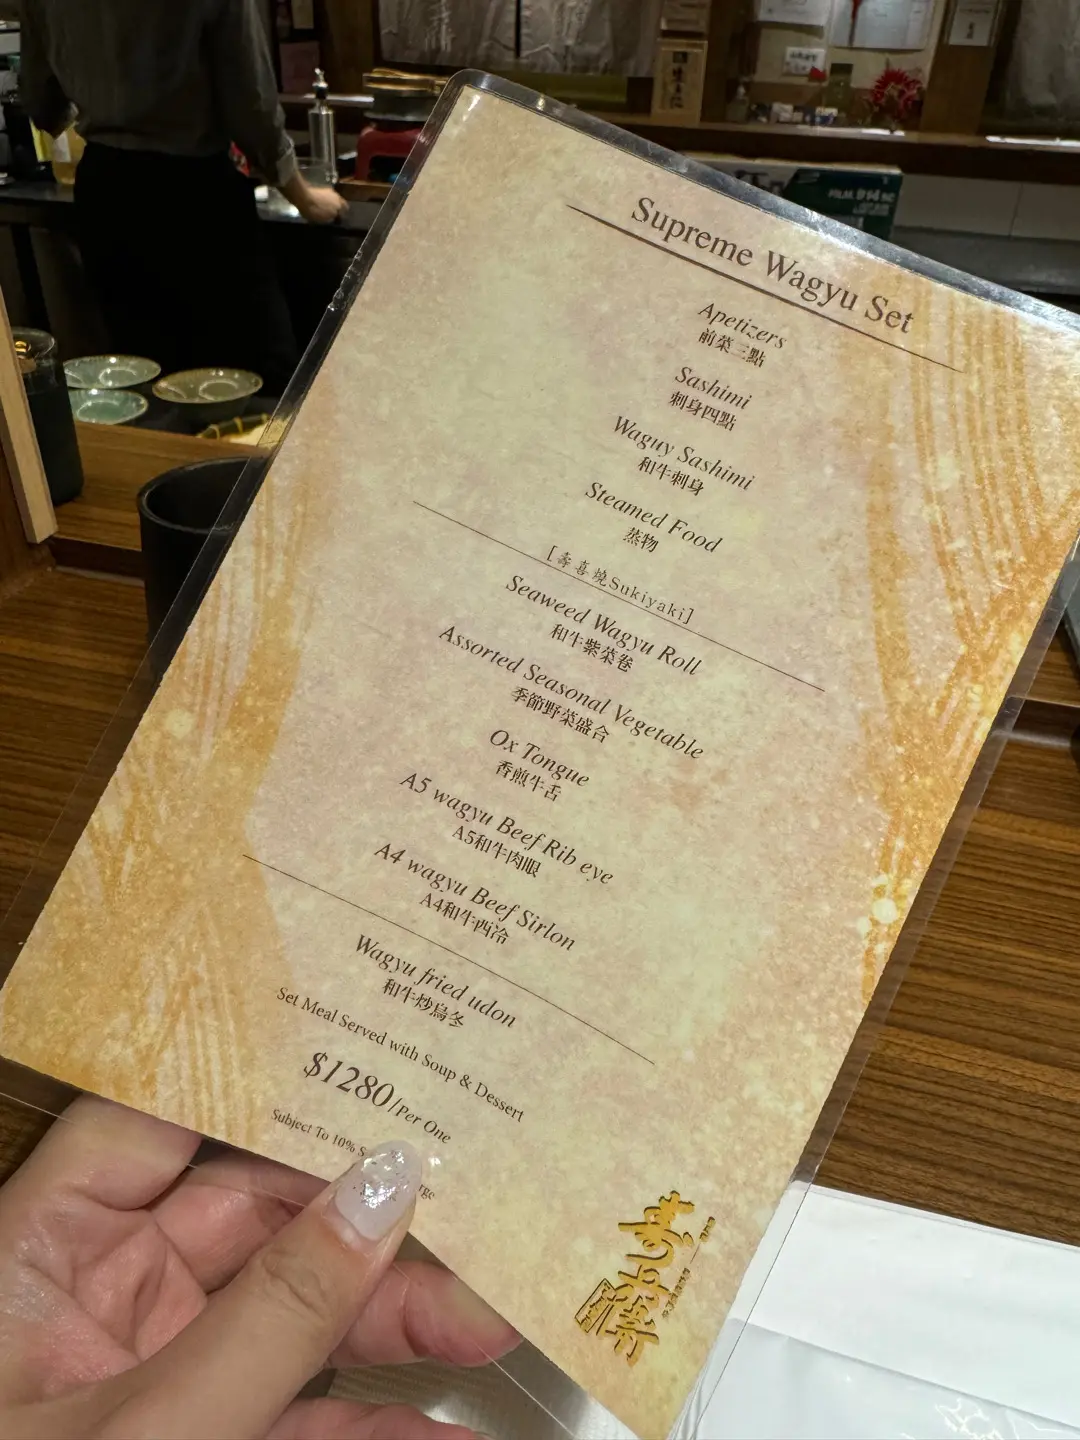 Supreme Wagyu Set
Apetizers
前菜三點
Sashimi
刺身四點
Waguy Sashimi
和牛刺身
Steamed Food
蒸物
[壽喜燒Sukiyaki]
Seaweed Wagyu Roll
和牛紫菜卷
Assorted Seasonal Vegetable
季節野菜盛合
Ox Tongue
香煎牛舌
A5 wagyu Beef Rib eye
A5和牛肉眼
A4 wagyu Beef Sirlon
A4和牛西冷
Wagyu fried udon
和牛炒烏冬
Set Meal Served with Soup & Dessert
$1280/Per One
Subject To 10%